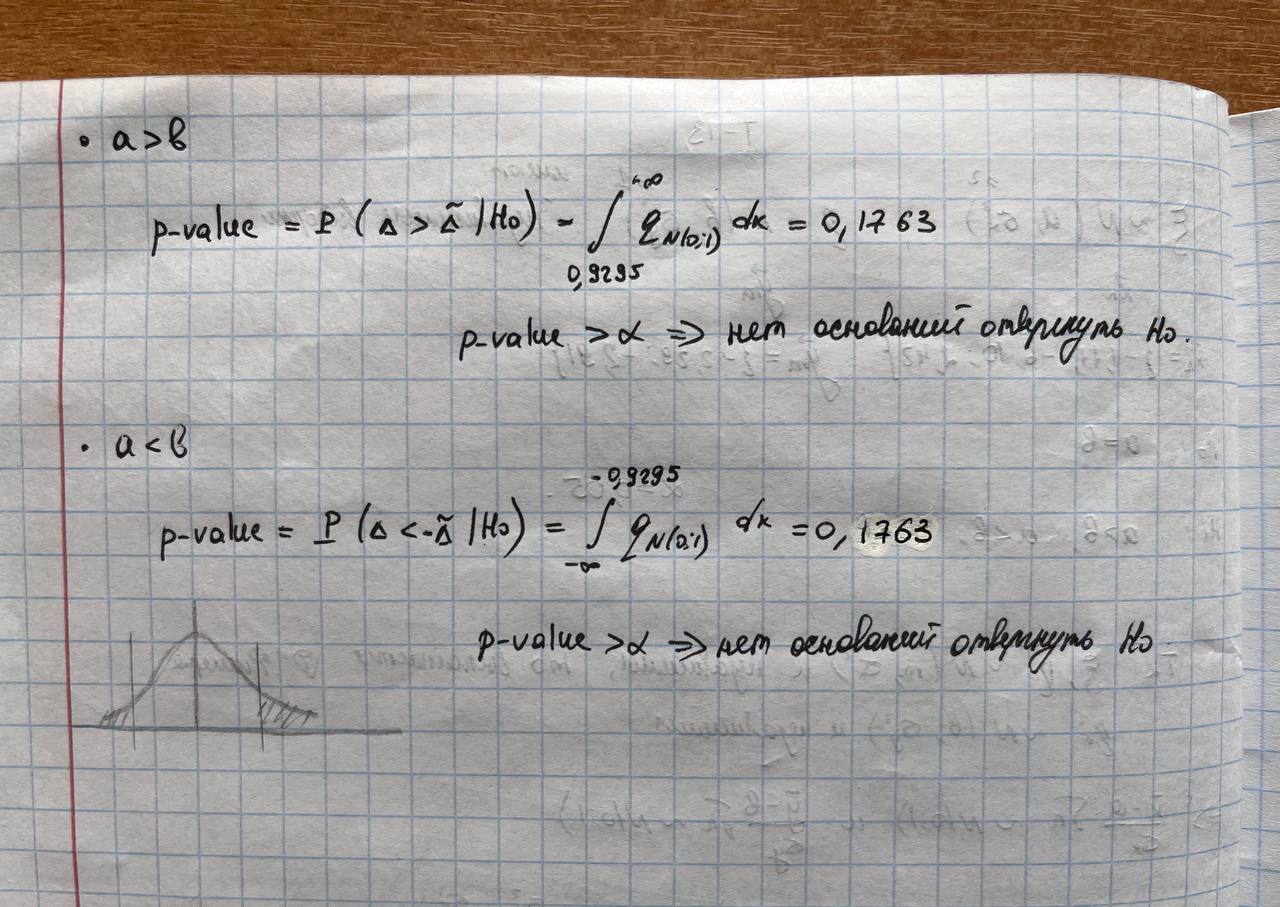 • a > b
p-value = P ( Δ > Δ̃ | H₀ ) - ∫_{0,9295}^{+∞} q_{N(0;1)} dx = 0,1763
p-value > α ⇒ нет оснований отвергнуть H₀.
• a < b
p-value = P ( Δ < -Δ̃ | H₀ ) = ∫_{-∞}^{-0,9295} q_{N(0;1)} dx = 0,1763
p-value > α ⇒ нет оснований отвергнуть H₀